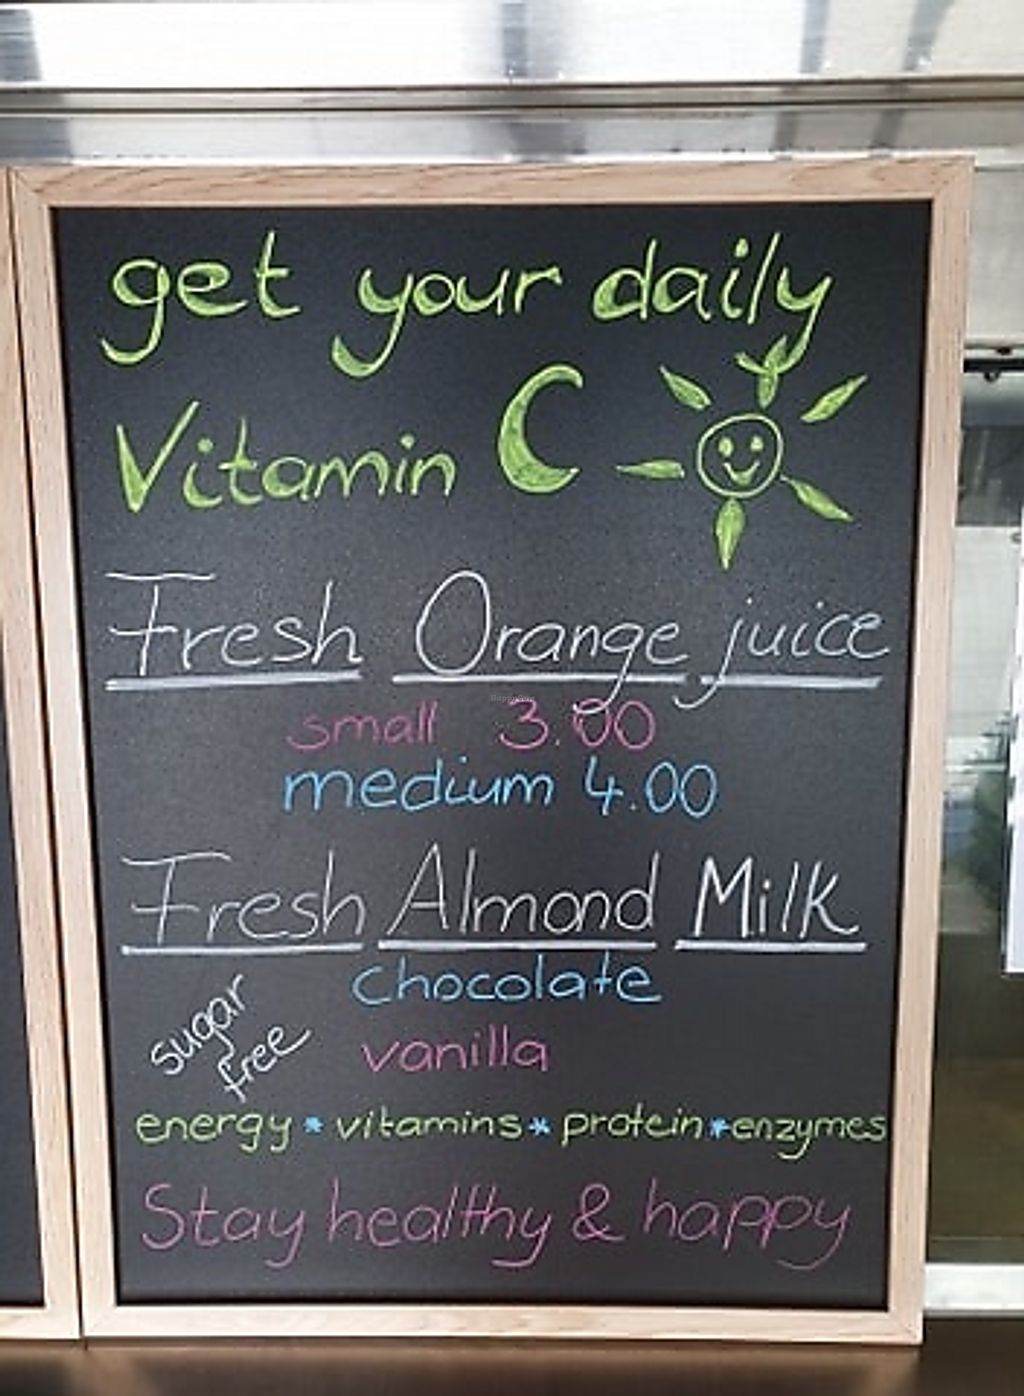 get your daily
Vitamin C
Fresh Orange juice
small 3.00
medium 4.00
Fresh Almond Milk
chocolate
sugar
free
vanilla
energy * vitamins * protein * enzymes
Stay healthy & happy